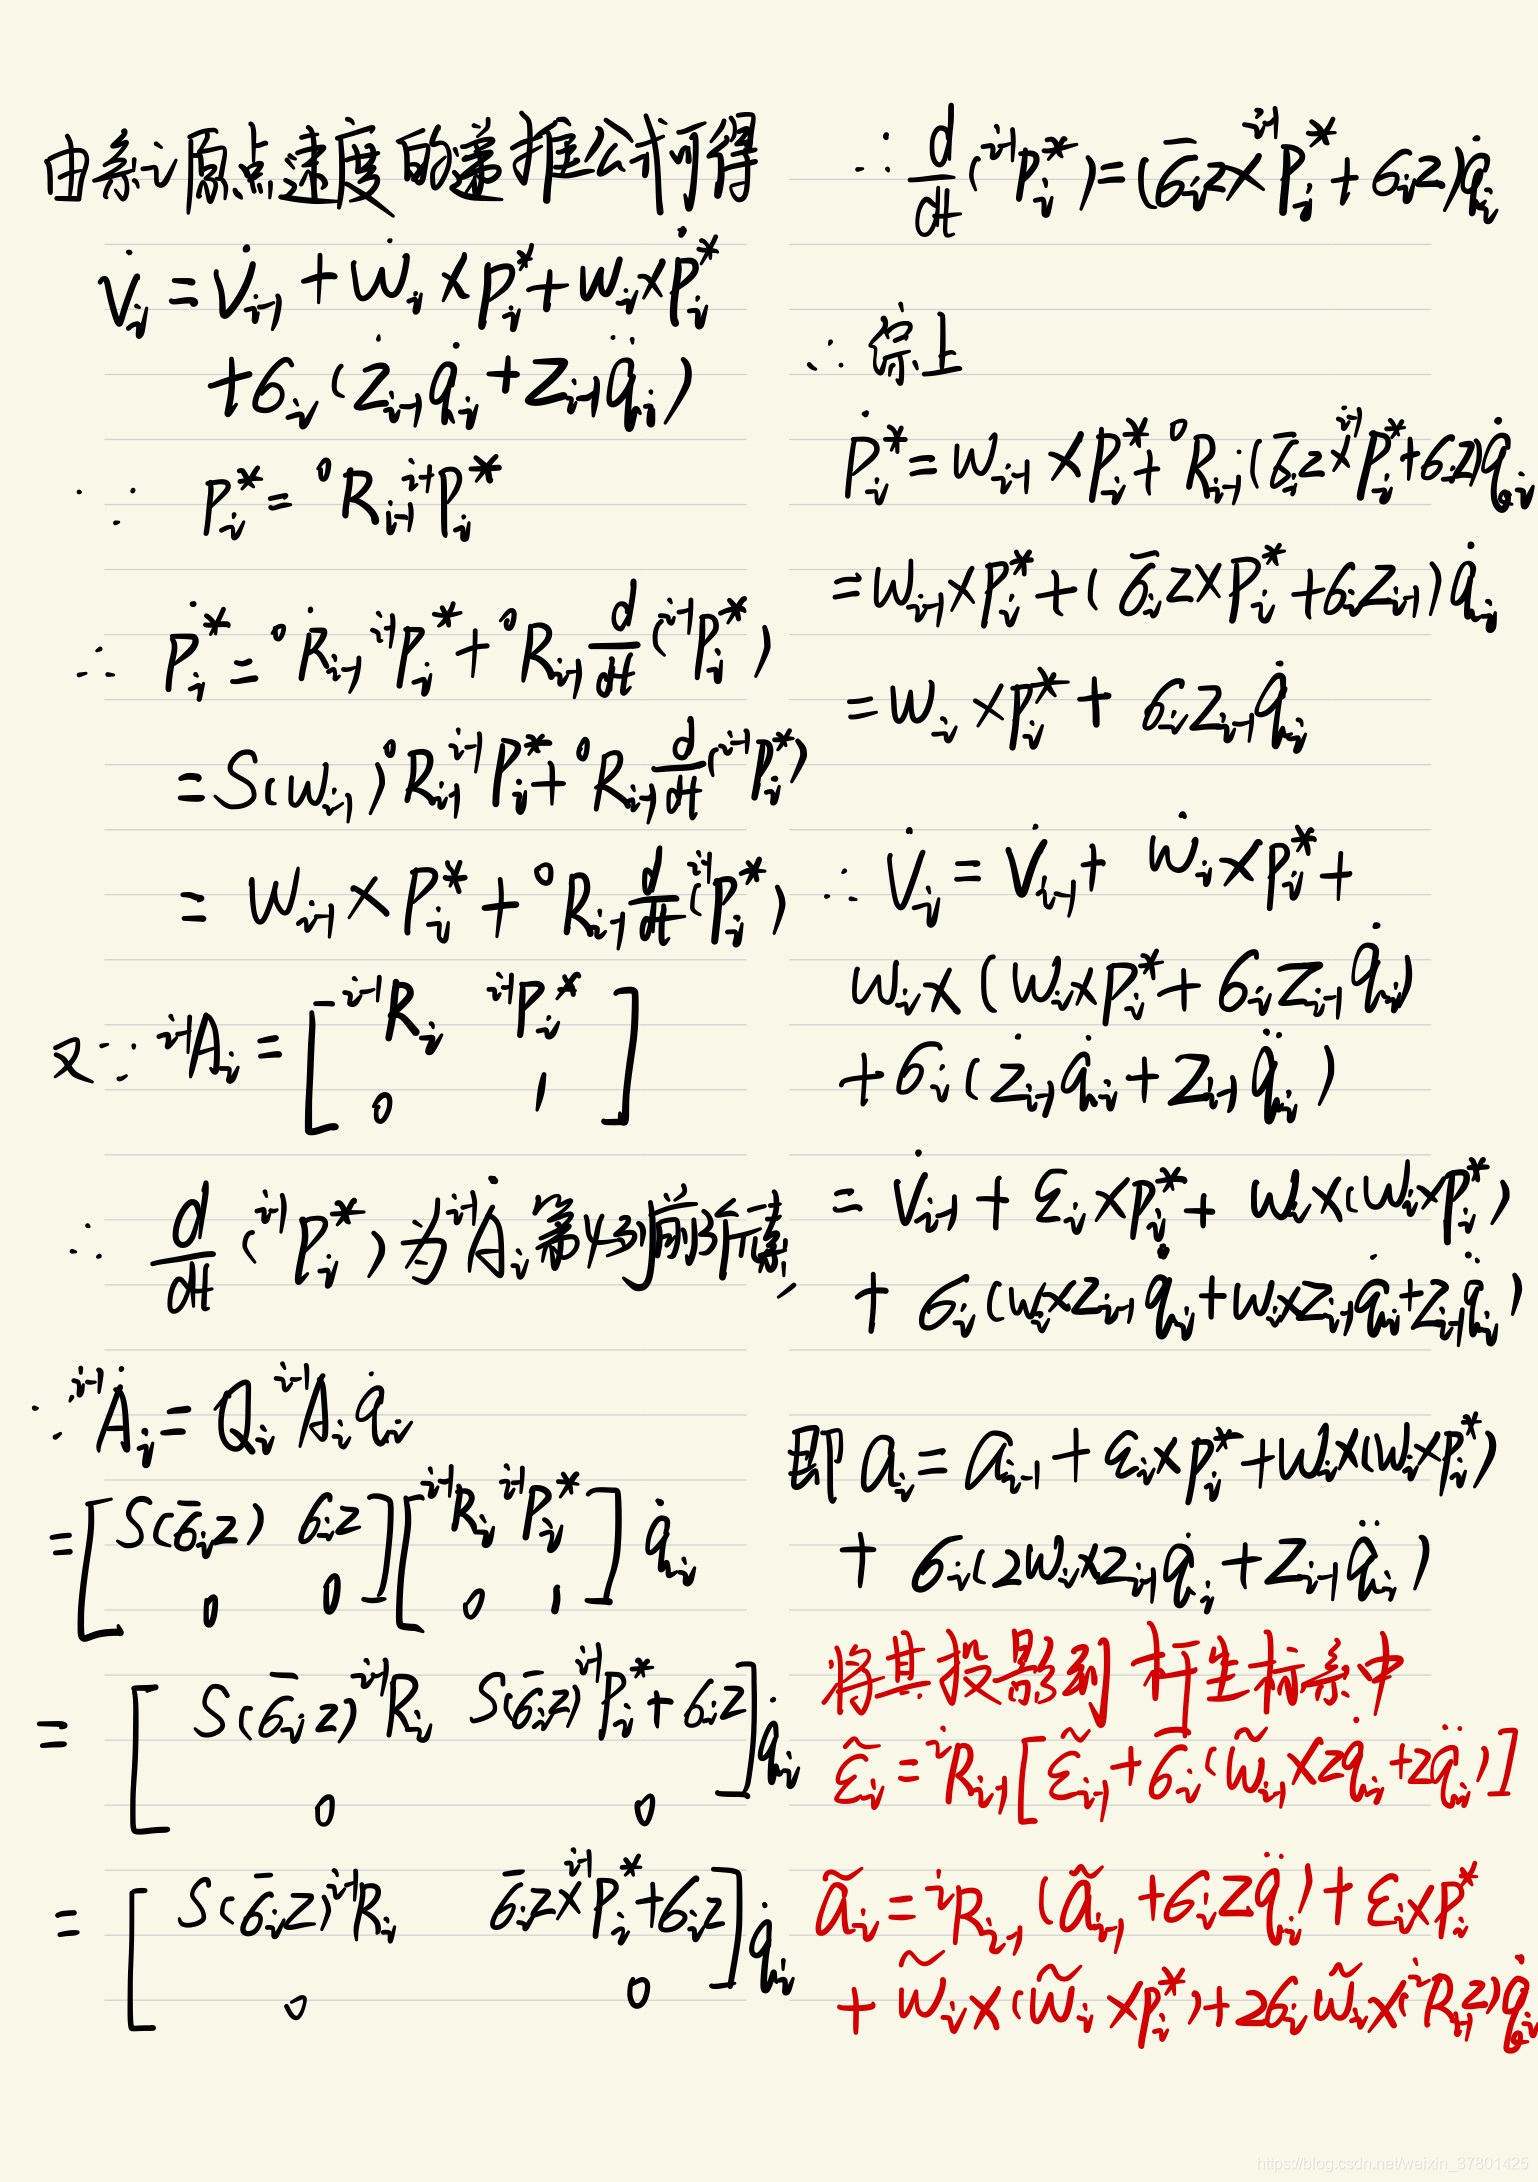 由系i原点速度的递推公式可得
v̇_i = v̇_{i-1} + ẇ_i × p_i^* + w_i × ṗ_i^*
+ б_i (ż_{i-1} q̇_i + z_{i-1} q̈_i)
∵ p_i^* = ⁰R_{i-1} ^{i-1}p_i^*
∴ ṗ_i^* = ⁰Ṙ_{i-1} ^{i-1}p_i^* + ⁰R_{i-1} d/dt (^{i-1}p_i^*)
= S(w_{i-1}) ⁰R_{i-1} ^{i-1}p_i^* + ⁰R_{i-1} d/dt (^{i-1}p_i^*)
= w_{i-1} × p_i^* + ⁰R_{i-1} d/dt (^{i-1}p_i^*)
又∵ ^{i-1}A_i = [ ^{i-1}R_i ^{i-1}p_i^*
0 1 ]
∴ d/dt (^{i-1}p_i^*) 为 ^{i-1}Ȧ_i 第4列前3个元素,
∵ ^{i-1}Ȧ_i = Q_i ^{i-1}A_i q̇_i
= [ S(б̄_i z) б_i z ] [ ^{i-1}R_i ^{i-1}p_i^* ] q̇_i
0 0 0 1
= [ S(б̄_i z) ^{i-1}R_i S(б̄_i z) ^{i-1}p_i^* + б_i z ] q̇_i
0 0
= [ S(б̄_i z) ^{i-1}R_i б̄_i z × ^{i-1}p_i^* + б_i z ] q̇_i
0 0
∴ d/dt (^{i-1}p_i^*) = (б̄_i z × ^{i-1}p_i^* + б_i z) q̇_i
∴ 综上
ṗ_i^* = w_{i-1} × p_i^* + ⁰R_{i-1} (б̄_i z × ^{i-1}p_i^* + б_i z) q̇_i
= w_{i-1} × p_i^* + (б̄_i z × p_i^* + б_i z_{i-1}) q̇_i
= w_i × p_i^* + б_i z_{i-1} q̇_i
∴ v̇_i = v̇_{i-1} + ẇ_i × p_i^* +
w_i × (w_i × p_i^* + б_i z_{i-1} q̇_i)
+ б_i (ż_{i-1} q̇_i + z_{i-1} q̈_i)
= v̇_{i-1} + ε_i × p_i^* + w_i × (w_i × p_i^*)
+ б_i (w_i × z_{i-1} q̇_i + w_i × z_{i-1} q̇_i + z_{i-1} q̈_i)
即 a_i = a_{i-1} + ε_i × p_i^* + w_i × (w_i × p_i^*)
+ б_i (2w_i × z_{i-1} q̇_i + z_{i-1} q̈_i)
将其投影到杆坐标系中
ε̃_i = ^iR_{i-1} [ε̃_{i-1} + б̄_i (w̃_{i-1} × z q̇_i + z q̈_i)]
ã_i = ^iR_{i-1} (ã_{i-1} + б_i z q̈_i) + ε_i × p_i^*
+ w̃_i × (w̃_i × p_i^*) + 2б_i w̃_i × (^iR_{i-1} z) q̇_i
https://blog.csdn.net/weixin_37801425